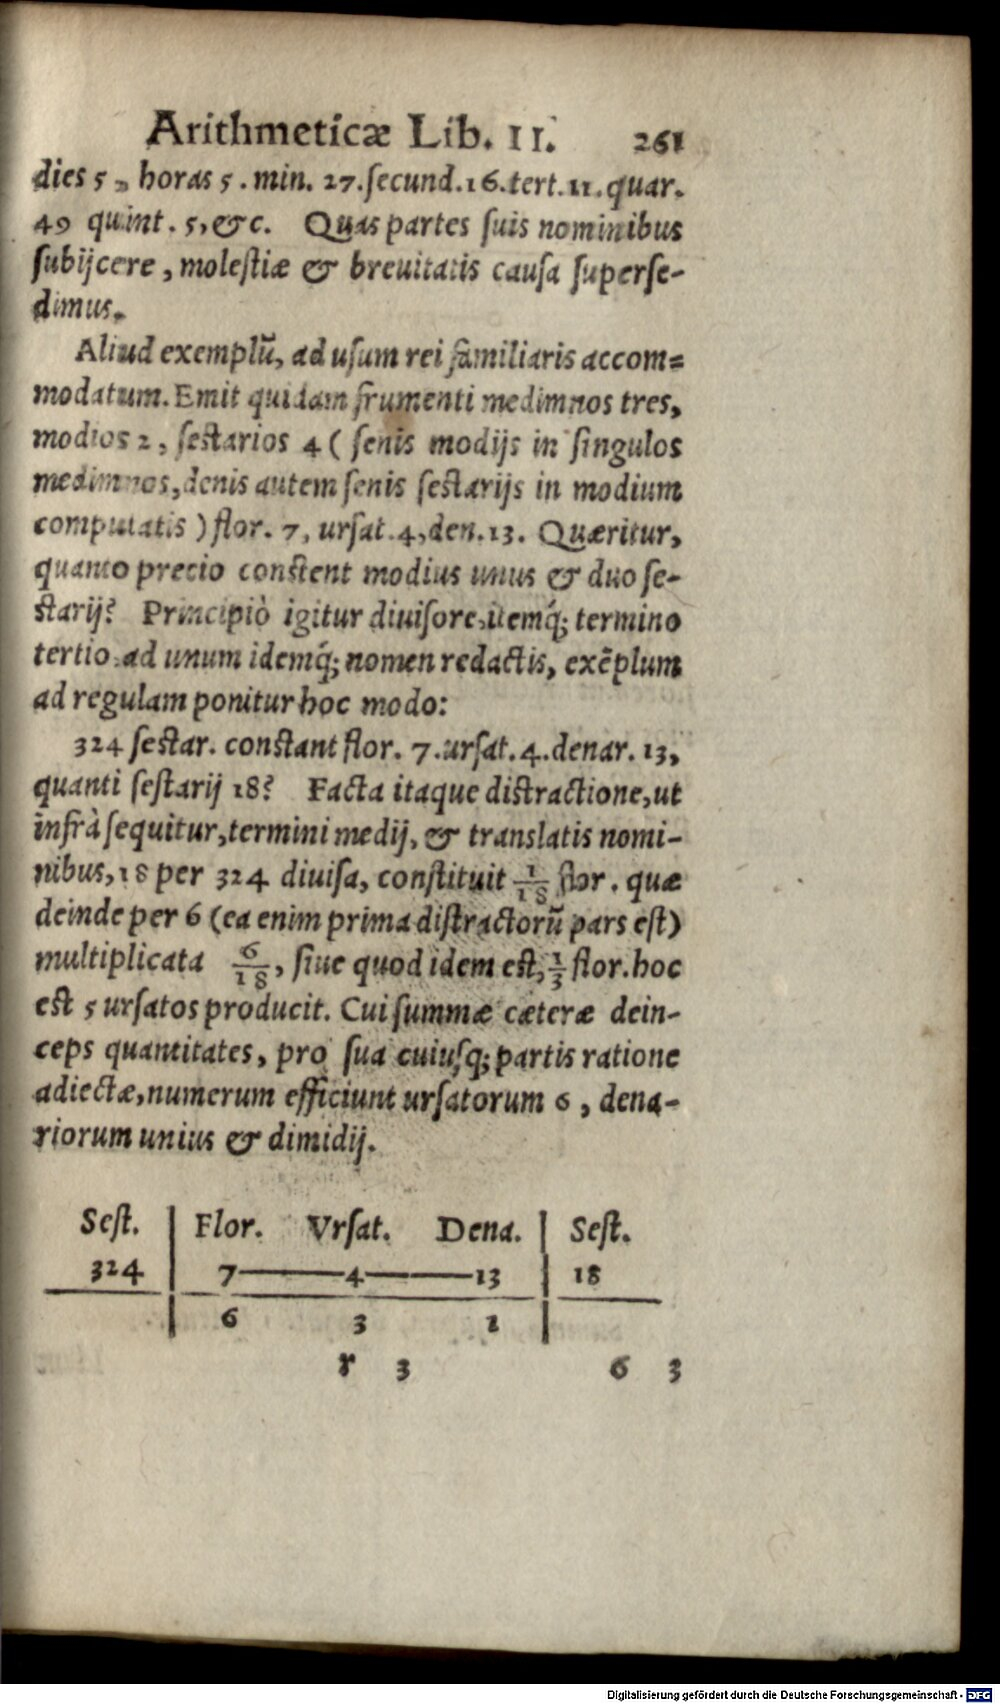 Arithmeticæ Lib. II. 261
dies 5, horas 5. min. 27. ſecund. 16. tert. 11. quar.
49 quint. 5, &c. Quas partes ſuis nominibus
ſubijcere, moleſtiæ & breuitatis cauſa ſuperſe-
dimus.
Aliud exemplũ, ad uſum rei familiaris accom=
modatum. Emit quidam frumenti medimnos tres,
modios 2, ſextarios 4 ( ſenis modijs in ſingulos
medimnos, denis autem ſenis ſextarijs in modium
computatis ) flor. 7, urſat. 4, den. 13. Quæritur,
quanto precio conſtent modius unus & duo ſe-
ſtarij? Principiò igitur diuiſore, itemq́; termino
tertio ad unum idemq́; nomen redactis, exẽplum
ad regulam ponitur hoc modo:
324 ſeſtar. conſtant flor. 7. urſat. 4. denar. 13,
quanti ſeſtarij 18? Facta itaque diſtractione, ut
infrà ſequitur, termini medij, & translatis nomi-
nibus, 18 per 324 diuiſa, conſtituit 1/18 flor. quæ
deinde per 6 (ea enim prima diſtractorũ pars eſt)
multiplicata 6/18, ſiue quod idem eſt, 1/3 flor. hoc
eſt 5 urſatos producit. Cui ſummæ cæteræ dein-
ceps quantitates, pro ſua cuiuſq; partis ratione
adiectæ, numerum efficiunt urſatorum 6, dena-
riorum unius & dimidij.
Seſt. | Flor. Vrſat. Dena. | Seſt.
324 | 7 — 4 — 13 | 18
6 3 1
r 3 6 3
Digitalisierung gefördert durch die Deutsche Forschungsgemeinschaft - DFG